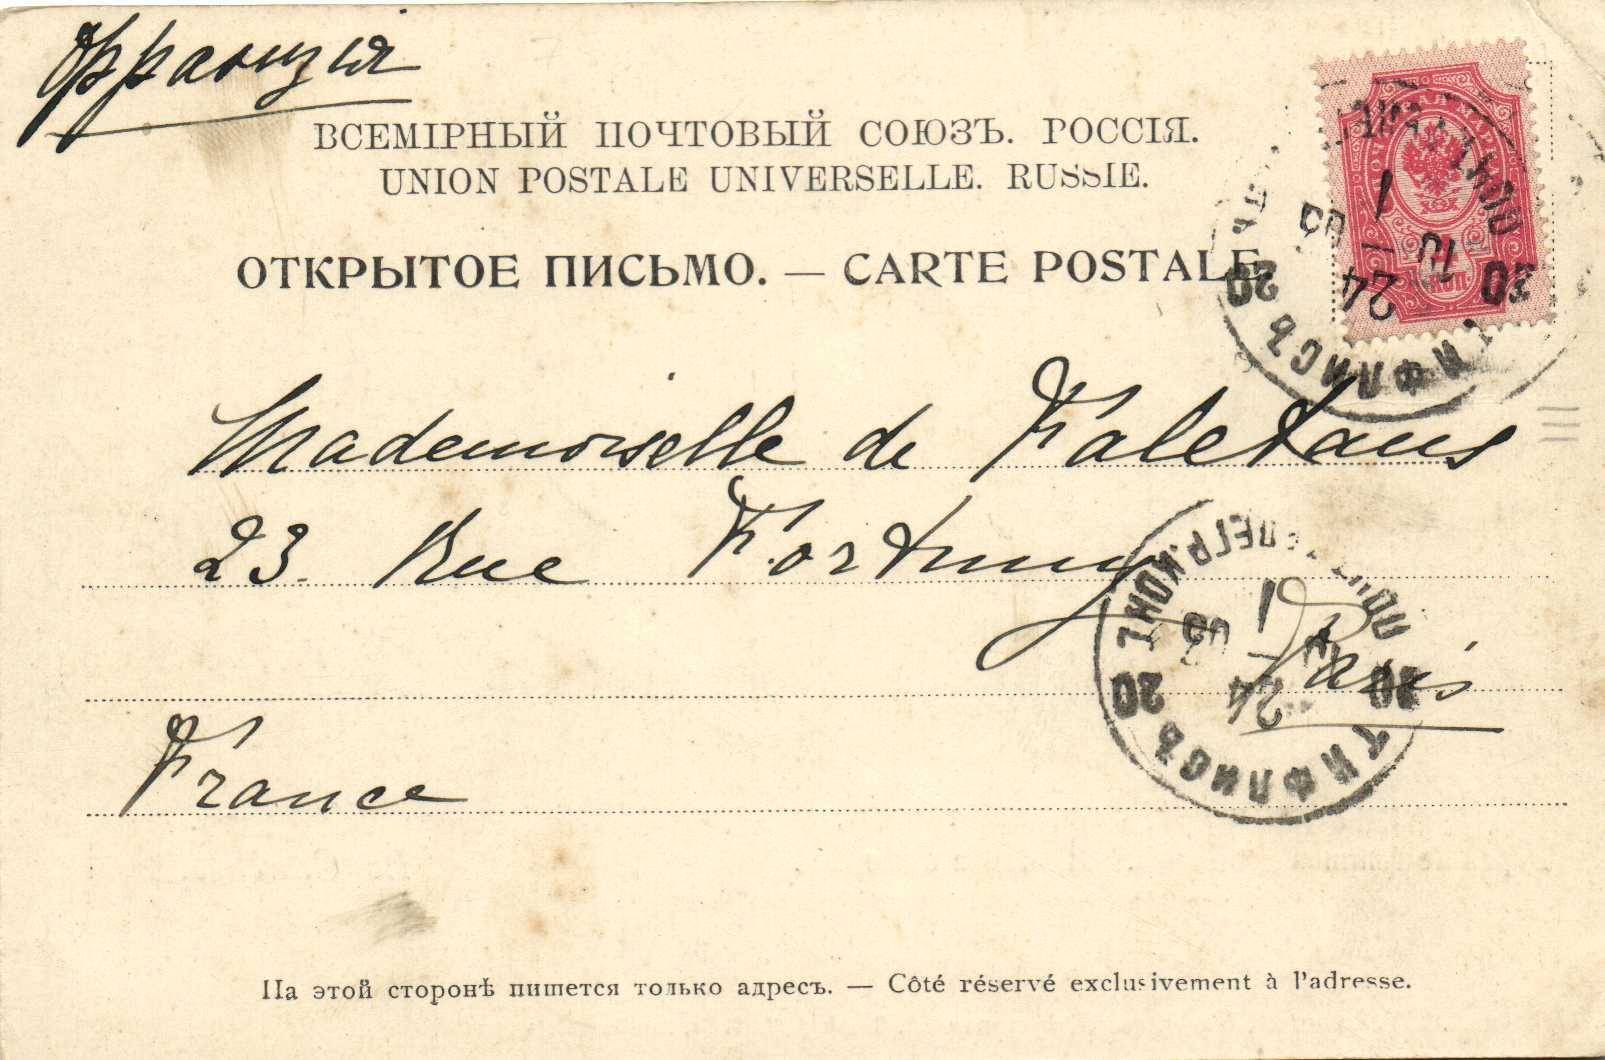 Франція
ВСЕМІРНЫЙ ПОЧТОВЫЙ СОЮЗЪ. РОССІЯ.
UNION POSTALE UNIVERSELLE. RUSSIE.
ОТКРЫТОЕ ПИСЬМО. — CARTE POSTALE.
ТИФЛИСЪ
20 20
24
10
Mademoiselle de Faletans
23. Rue Fortuny
Paris
France
ПОЧТ. ТЕЛЕГР. КОНТ.
20 20
24
ТИФЛИСЪ
На этой сторонѣ пишется только адресъ. — Côté réservé exclusivement à l'adresse.